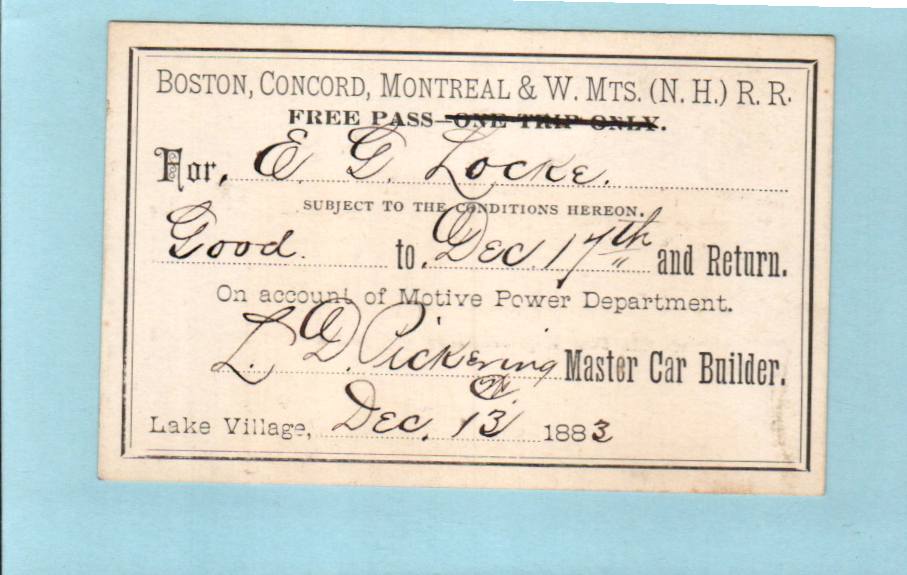 BOSTON, CONCORD, MONTREAL & W. MTS. (N. H.) R. R.
FREE PASS—ONE TRIP ONLY.
For, E. G. Locke.
SUBJECT TO THE CONDITIONS HEREON.
Good. to Dec 17th and Return.
On account of Motive Power Department.
L. D. Pickering Master Car Builder.
Lake Village, Dec. 13 1883